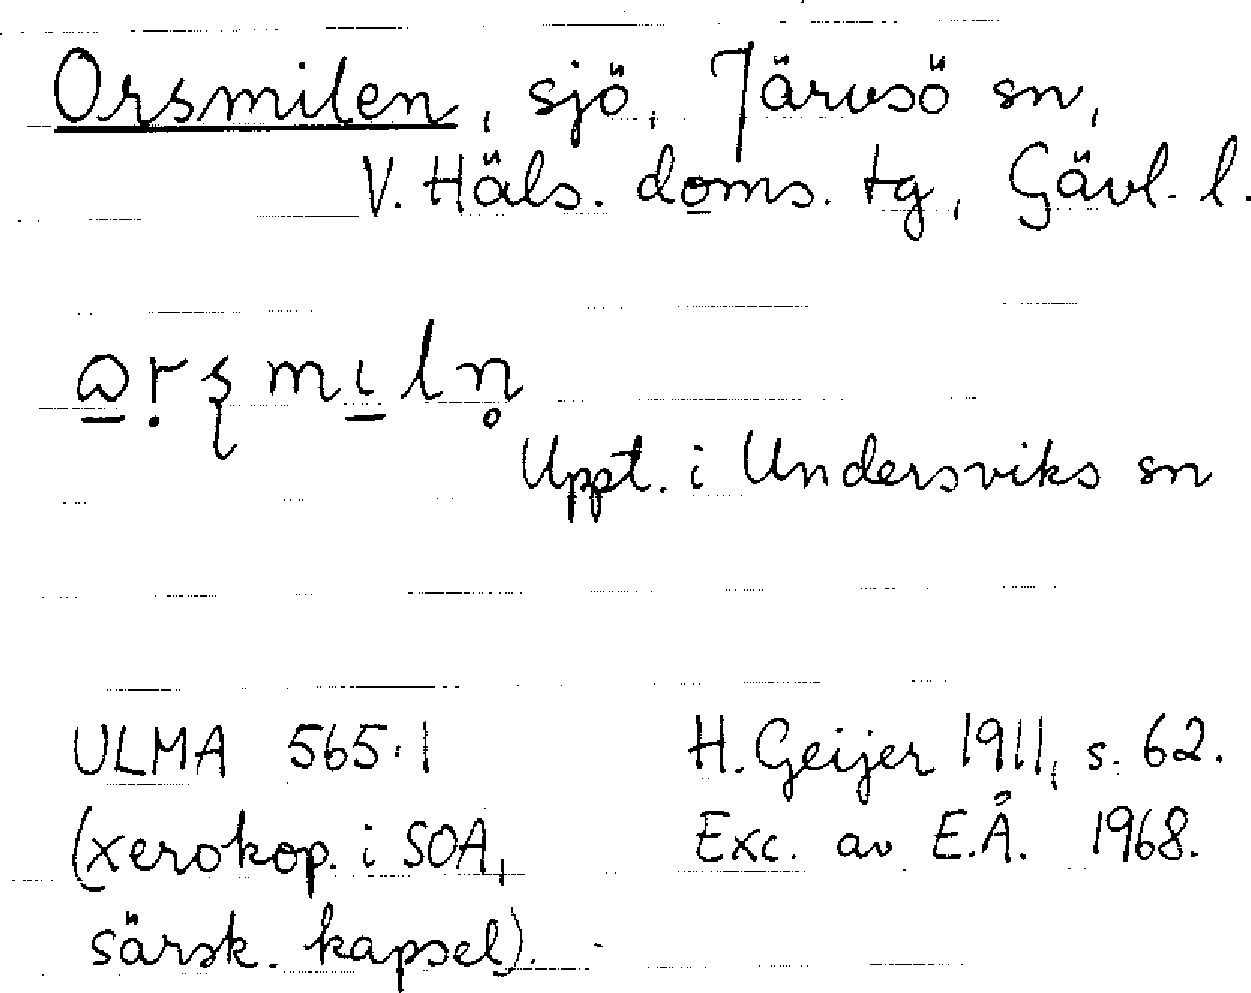 Orsmilen, sjö, Järvsö sn,
V. Häls. doms. tg, Gävl. l.
Uppt. i Undersviks sn
ULMA 565:1 H. Geijer 1911, s. 62.
(xerokop. i SOA, Exc. av E.Å. 1968.
särsk. kapsel).